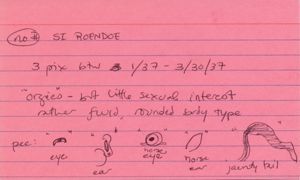 no.# SI ROENDOE
3 pix btw 1/37 - 3/30/37
"orgies" - but little sexual interest
rather fluid, rounded body type
pec: eye ear horse eye horse ear jaunty tail